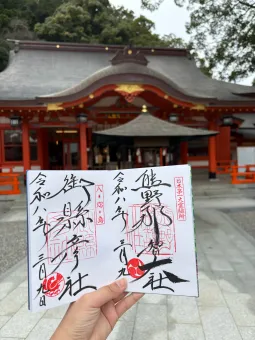 日本第一大霊験所
熊野那智大社
令和八年三月九日
八咫烏
御縣彦社
令和八年三月九日